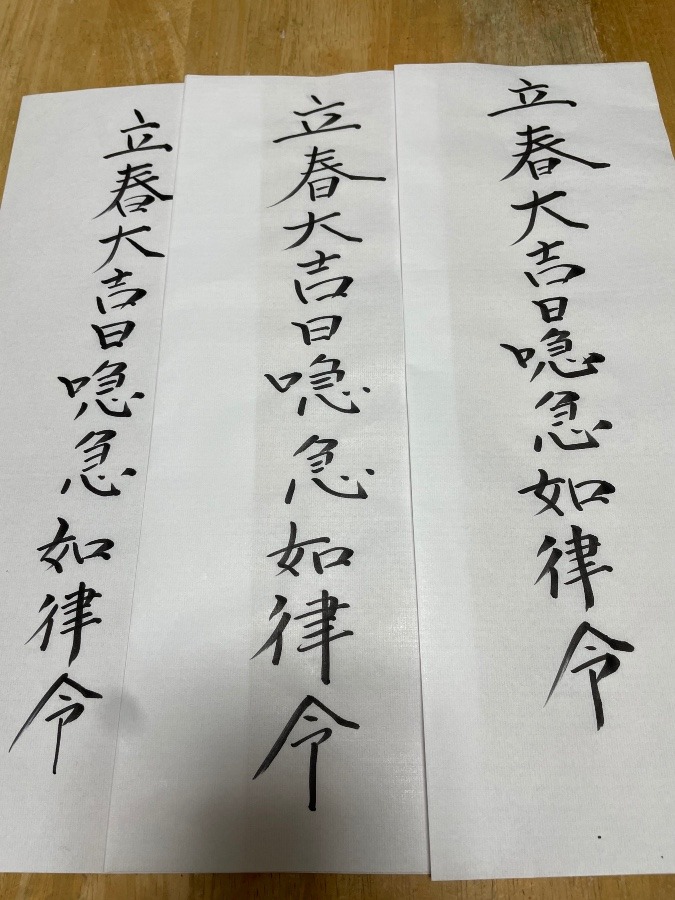 立春大吉日喼急如律令
立春大吉日喼急如律令
立春大吉日喼急如律令